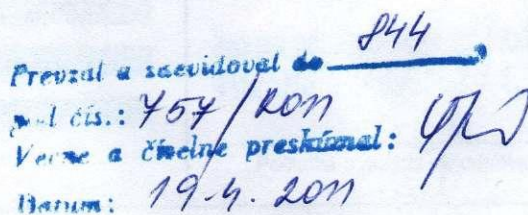 Prevzal a zaevidoval do 844
pod čís.: 757/2011
Vecne a číselne preskúmal:
Dátum: 19.4. 2011